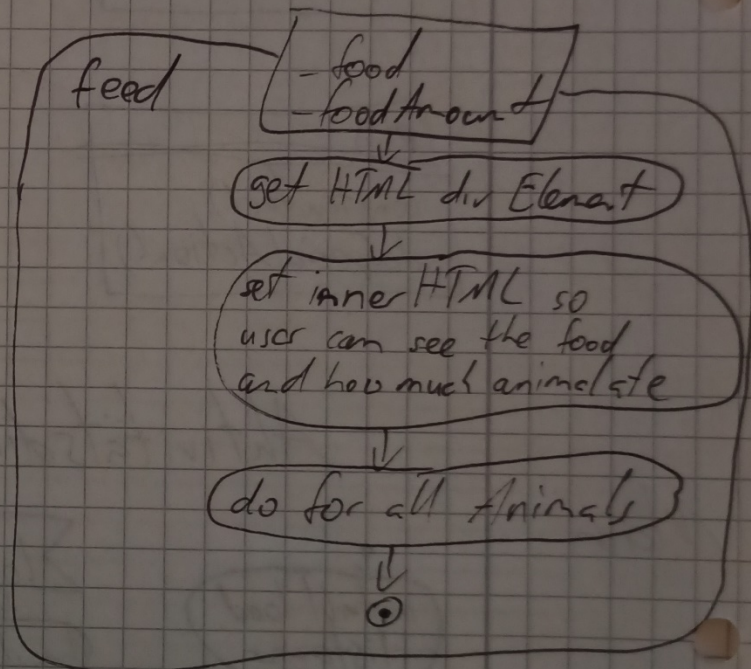 feed
- food
- foodAmount
get HTML div Element
set innerHTML so
user can see the food
and how much animal ate
do for all Animals